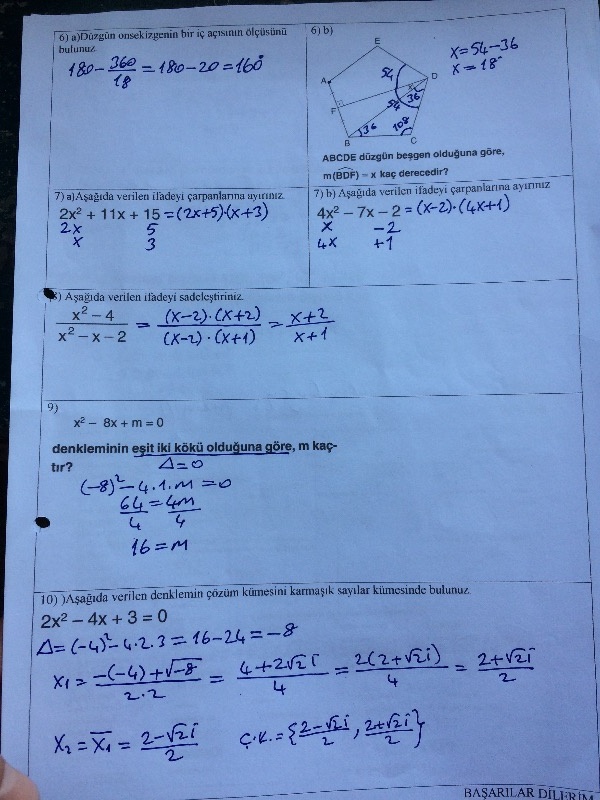 6) a)Düzgün onsekizgenin bir iç açısının ölçüsünü
bulunuz.
180 - 360/18 = 180 - 20 = 160°
6) b)
E
A
D
F
B
C
54
x
36
54
36
108
x = 54 - 36
x = 18°
ABCDE düzgün beşgen olduğuna göre,
m(BDF) = x kaç derecedir?
7) a)Aşağıda verilen ifadeyi çarpanlarına ayırınız.
2x² + 11x + 15 = (2x+5)·(x+3)
2x 5
x 3
7) b) Aşağıda verilen ifadeyi çarpanlarına ayırınız
4x² – 7x – 2 = (x-2)·(4x+1)
x -2
4x +1
) Aşağıda verilen ifadeyi sadeleştiriniz.
x² – 4 / x² – x – 2 = (x-2)·(x+2) / (x-2)·(x+1) = x+2 / x+1
9)
x² – 8x + m = 0
denkleminin eşit iki kökü olduğuna göre, m kaç-
tır?
Δ = 0
(-8)² - 4.1.m = 0
64/4 = 4m/4
16 = m
10) )Aşağıda verilen denklemin çözüm kümesini karmaşık sayılar kümesinde bulunuz.
2x² – 4x + 3 = 0
Δ = (-4)² - 4.2.3 = 16 - 24 = -8
x₁ = -(-4)+√-8 / 2.2 = 4+2√2i / 4 = 2(2+√2i) / 4 = 2+√2i / 2
x₂ = x̄₁ = 2-√2i / 2 Ç.K. = {2-√2i / 2 , 2+√2i / 2}
BAŞARILAR DİLERİM